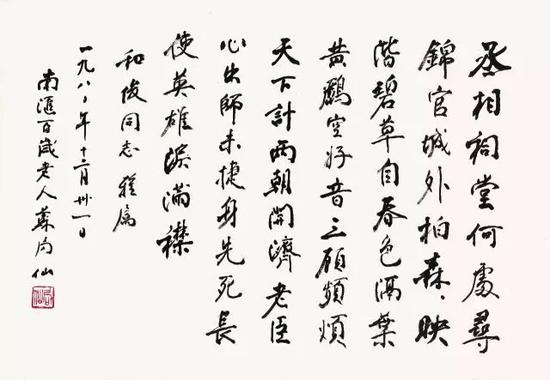 丞相祠堂何處尋
錦官城外柏森々映
階碧草自春色隔葉
黃鸝空好音三顧頻煩
天下計兩朝開濟老臣
心出師未捷身先死長
使英雄淚滿襟
和俊同志雅屬
一九八々年十二月卅一日
南滙百歲老人蘇局仙